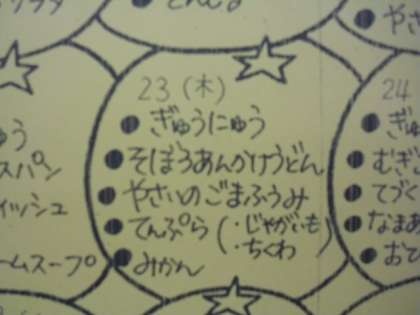 てんぷら
やさ
23(木)
●ぎゅうにゅう
●そぼろあんかけうどん
●やさいのごまふうみ
●てんぷら(・じゃがいも
・ちくわ)
●みかん
ゅう
スパン
ィッシュ
ームスープ
24
●ぎゅ
●むぎご
●てづく
●なまあ
●おひ